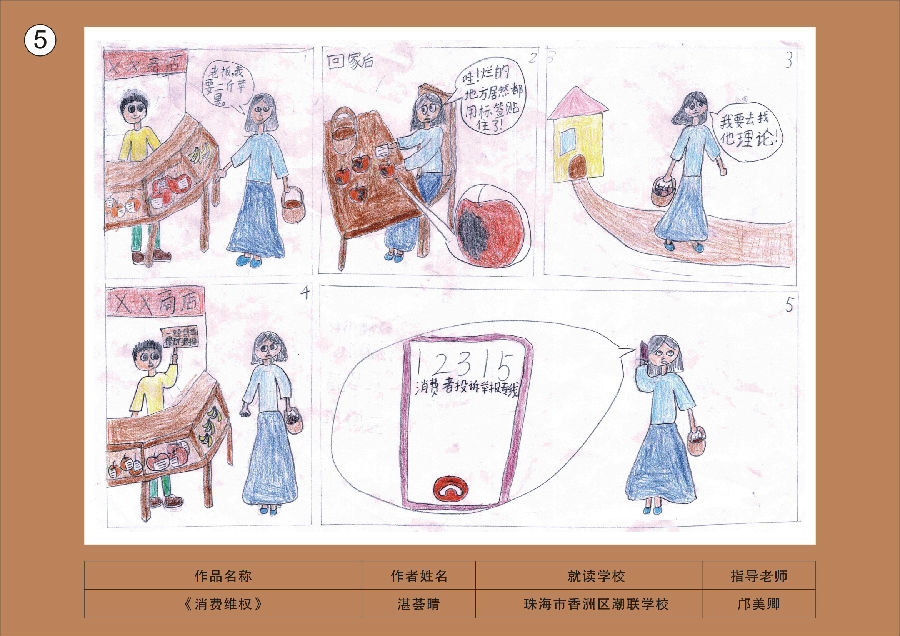 5
1
XX商店
老板,我
要一斤苹
果。
2
回家后
哇!烂的
地方居然都
用标签贴
住了!
3
我要去找
他理论!
4
XX商店
5
12315
消费者投诉举报专线
作品名称 作者姓名 就读学校 指导老师
《消费维权》 湛荟晴 珠海市香洲区潮联学校 邝美卿